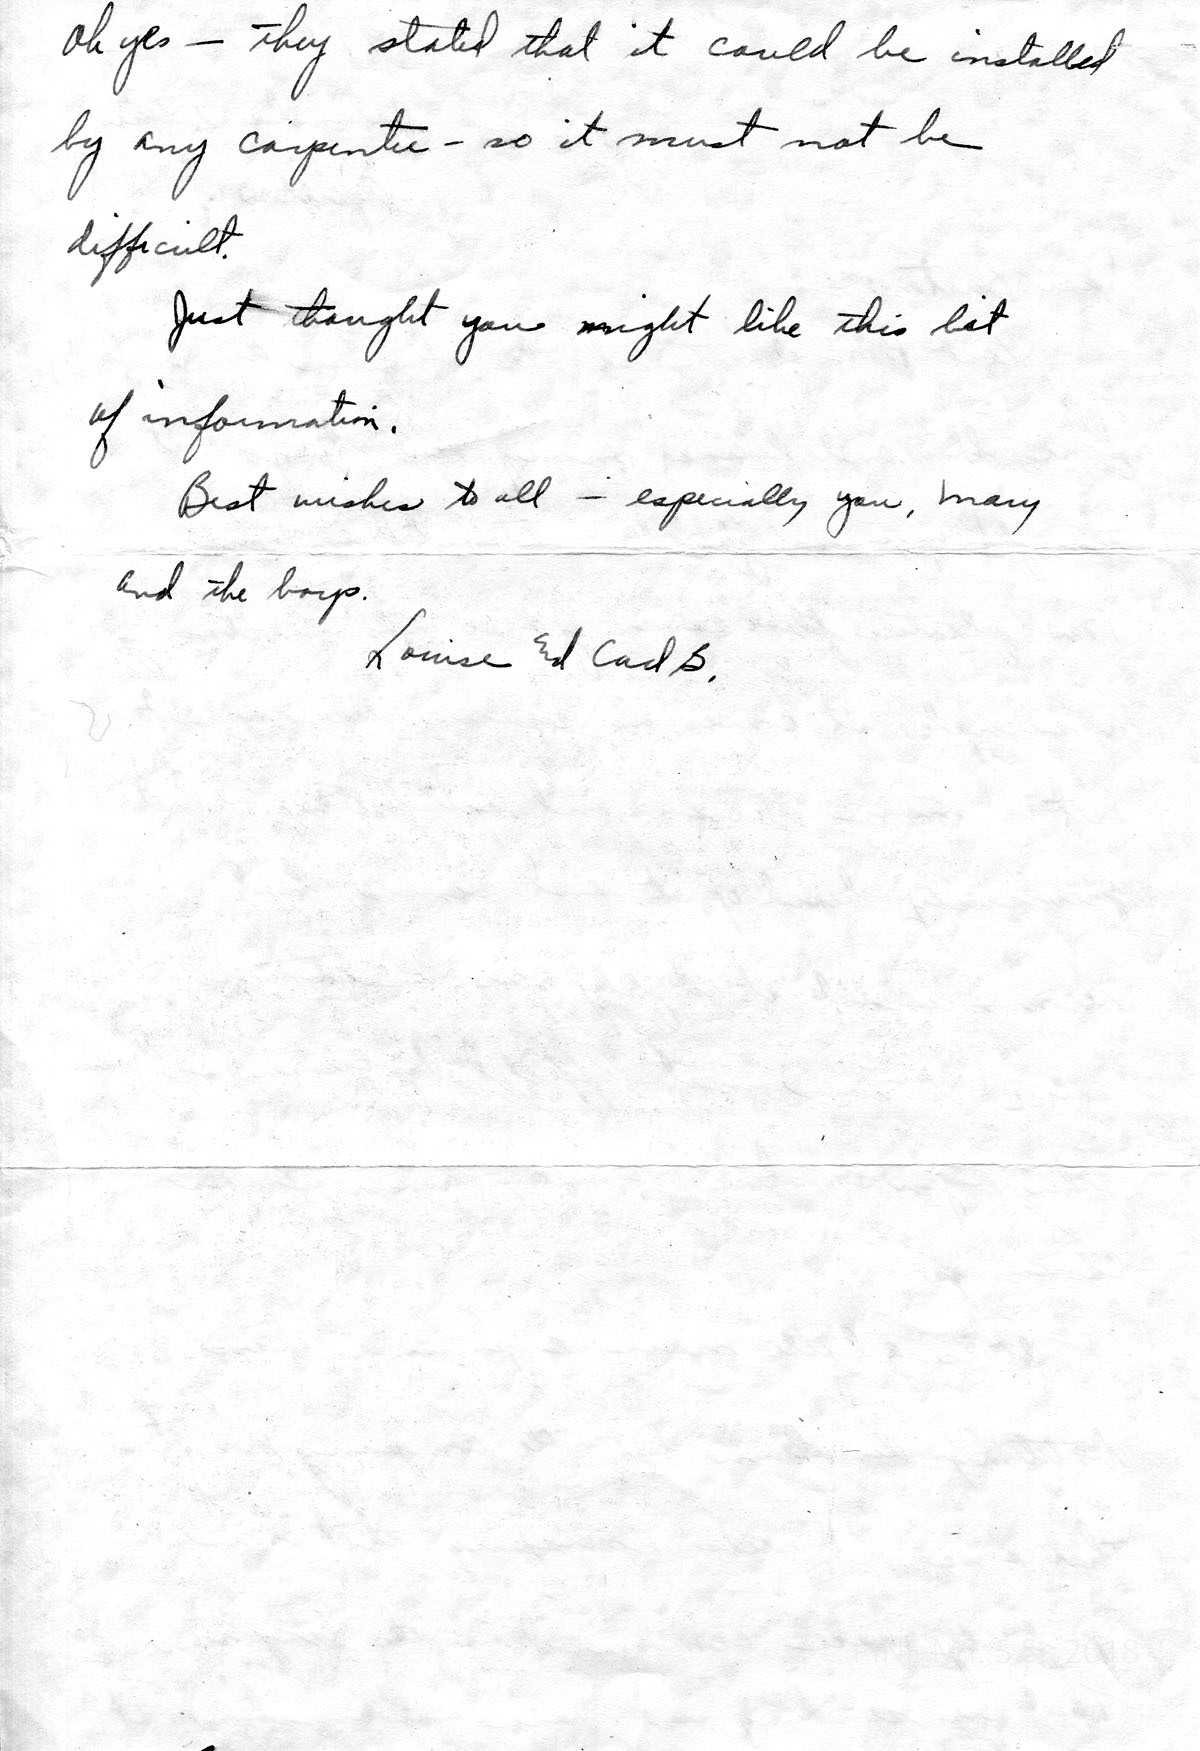 Oh yes — they stated that it could be installed
by any carpenter - so it must not be
difficult.
Just thought you might like this bit
of information.
Best wishes to all — especially you, Mary
and the boys.
Louise Ed Carl S.